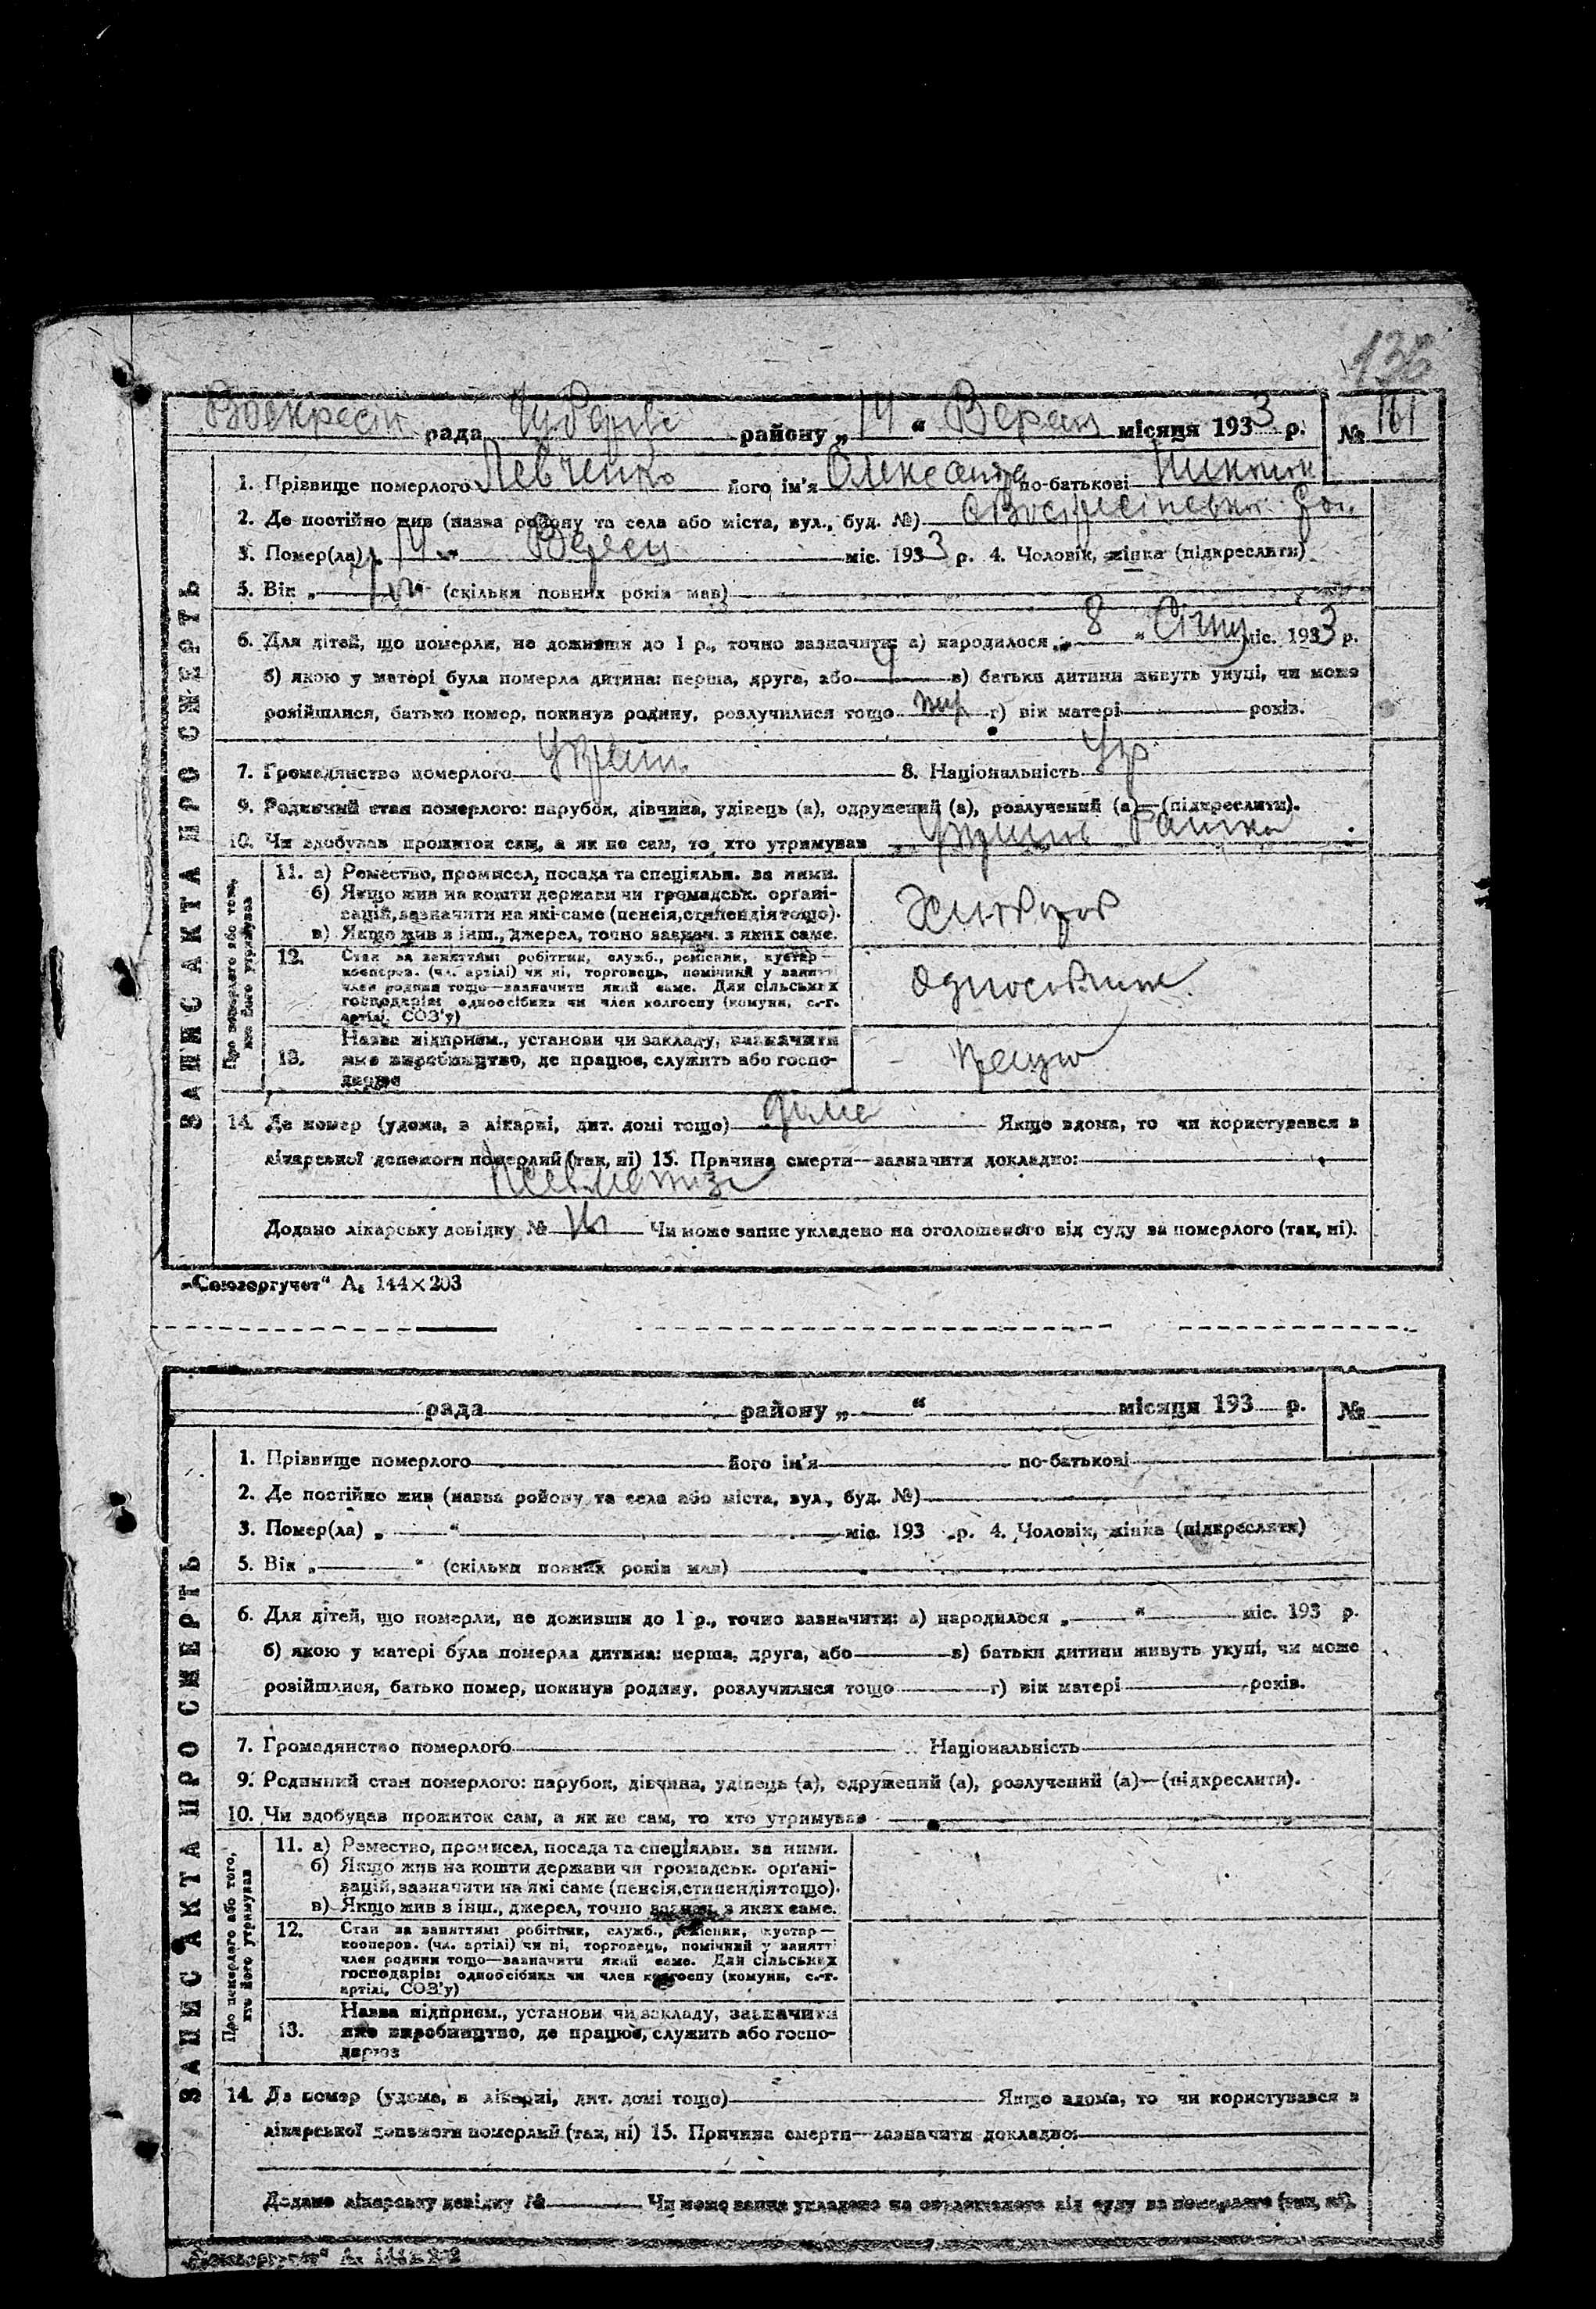 136
Воскресін рада Чубарівс району „14“ Верес місяця 1933 р. № 161
ЗАПИС АКТА ПРО СМЕРТЬ
1. Прізвище померлого Левченко його ім'я Олександра по-батькові
2. Де постійно жив (назва району та села або міста, вул., буд. №)
3. Помер(ла) „14“ Верес міс. 1933 р. 4. Чоловік, жінка (підкреслити)
5. Вік „ “ (скільки повних років мав)
6. Для дітей, що померли, не доживши до 1 р., точно зазначити: а) народилося „8“ Січну міс. 1933 р.
б) якою у матері була померла дитина: перша, друга, або 4 в) батьки дитини живуть укупі, чи може
розійшлися, батько помер, покинув родину, розлучилися тощо г) вік матері років.
7. Громадянство померлого Україн 8. Національність Укр
9. Родинний стан померлого: парубок, дівчина, удівець (а), одружений (а), розлучений (а)—(підкреслити).
10. Чи здобував прожиток сам, а як не сам, то хто утримував
Про померлого або того, хто його утримував
11. а) Ремество, промисел, посада та спеціяльн. за ними.
б) Якщо жив на кошти держави чи громадськ. органі-
зацій, зазначити на які-саме (пенсія, стипендія тощо).
в) Якщо жив з інш., джерел, точно зазнач. з яких саме.
Хлібороб
12. Стан за заняттям: робітник, служб., ремісник, кустар—
кооперов. (чл. артілі) чи ні, торговець, помічний у занятті
член родини тощо—зазначити який саме. Для сільських
господарів: одноосібник чи член колгоспу (комуни, с.-г.
артілі, СОЗ'у)
одноосібник
13. Назва підприєм., установи чи закладу, зазначити
яке виробництво, де працює, служить або госпо-
дарює
14. Де помер (удома, в лікарні, дит. домі тощо) дома Якщо вдома, то чи користувався з
лікарської допомоги померлий (так, ні) 15. Причина смерти—зазначити докладно:
Додано лікарську довідку № Чи може запис укладено на оголошеного від суду за померлого (так, ні).
„Союзоргучет“ А₅ 144×203
рада району „ “ місяця 193 р. №
ЗАПИС АКТА ПРО СМЕРТЬ
1. Прізвище померлого його ім'я по-батькові
2. Де постійно жив (назва району та села або міста, вул., буд. №)
3. Помер(ла) „ “ міс. 193 р. 4. Чоловік, жінка (підкреслити)
5. Вік „ “ (скільки повних років мав)
6. Для дітей, що померли, не доживши до 1 р., точно зазначити: а) народилося „ “ міс. 193 р.
б) якою у матері була померла дитина: перша, друга, або в) батьки дитини живуть укупі, чи може
розійшлися, батько помер, покинув родину, розлучилися тощо г) вік матері років.
7. Громадянство померлого Національність
9. Родинний стан померлого: парубок, дівчина, удівець (а), одружений (а), розлучений (а)—(підкреслити).
10. Чи здобував прожиток сам, а як не сам, то хто утримував
Про померлого або того, хто його утримував
11. а) Ремество, промисел, посада та спеціяльн. за ними.
б) Якщо жив на кошти держави чи громадськ. органі-
зацій, зазначити на які саме (пенсія, стипендія тощо).
в) Якщо жив з інш., джерел, точно зазнач. з яких саме.
12. Стан за заняттям: робітник, служб., ремісник, кустар—
кооперов. (чл. артілі) чи ні, торговець, помічний у занятті
член родини тощо—зазначити який саме. Для сільських
господарів: одноосібник чи член колгоспу (комуни, с.-г.
артілі, СОЗ'у)
13. Назва підприєм., установи чи закладу, зазначити
яке виробництво, де працює, служить або госпо-
дарює
14. Де помер (удома, в лікарні, дит. домі тощо) Якщо вдома, то чи користувався з
лікарської допомоги померлий (так, ні) 15. Причина смерти—зазначити докладно:
Додано лікарську довідку № Чи може запис укладено на оголошеного від суду за померлого (так, ні).
„Союзоргучет“ А₅ 144×203